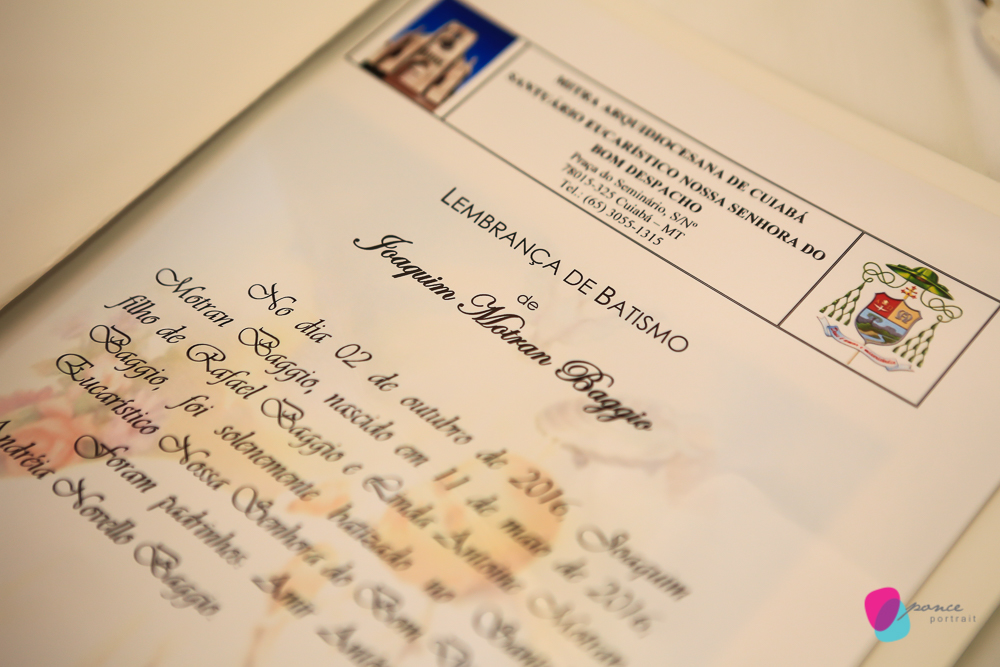 MITRA ARQUIDIOCESANA DE CUIABÁ
SANTUÁRIO EUCARÍSTICO NOSSA SENHORA DO
BOM DESPACHO
Praça do Seminário, S/Nº
78015-325 Cuiabá – MT
Tel.: (65) 3055-1315
LEMBRANÇA DE BATISMO
de
Joaquim Motran Baggio
No dia 02 de outubro de 2016, Joaquim
Motran Baggio, nascido em 11 de maio de 2016,
filho de Rafael Baggio e Linda Antoine Motran
Baggio, foi solenemente batizado no
Eucarístico Nossa Senhora do Bom
Foram padrinhos:
Andréia Novello Baggio.
ponce
portrait